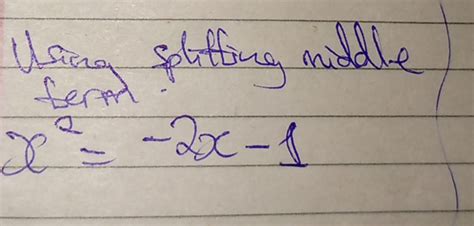 Using splitting middle
term.
x² = -2x - 1